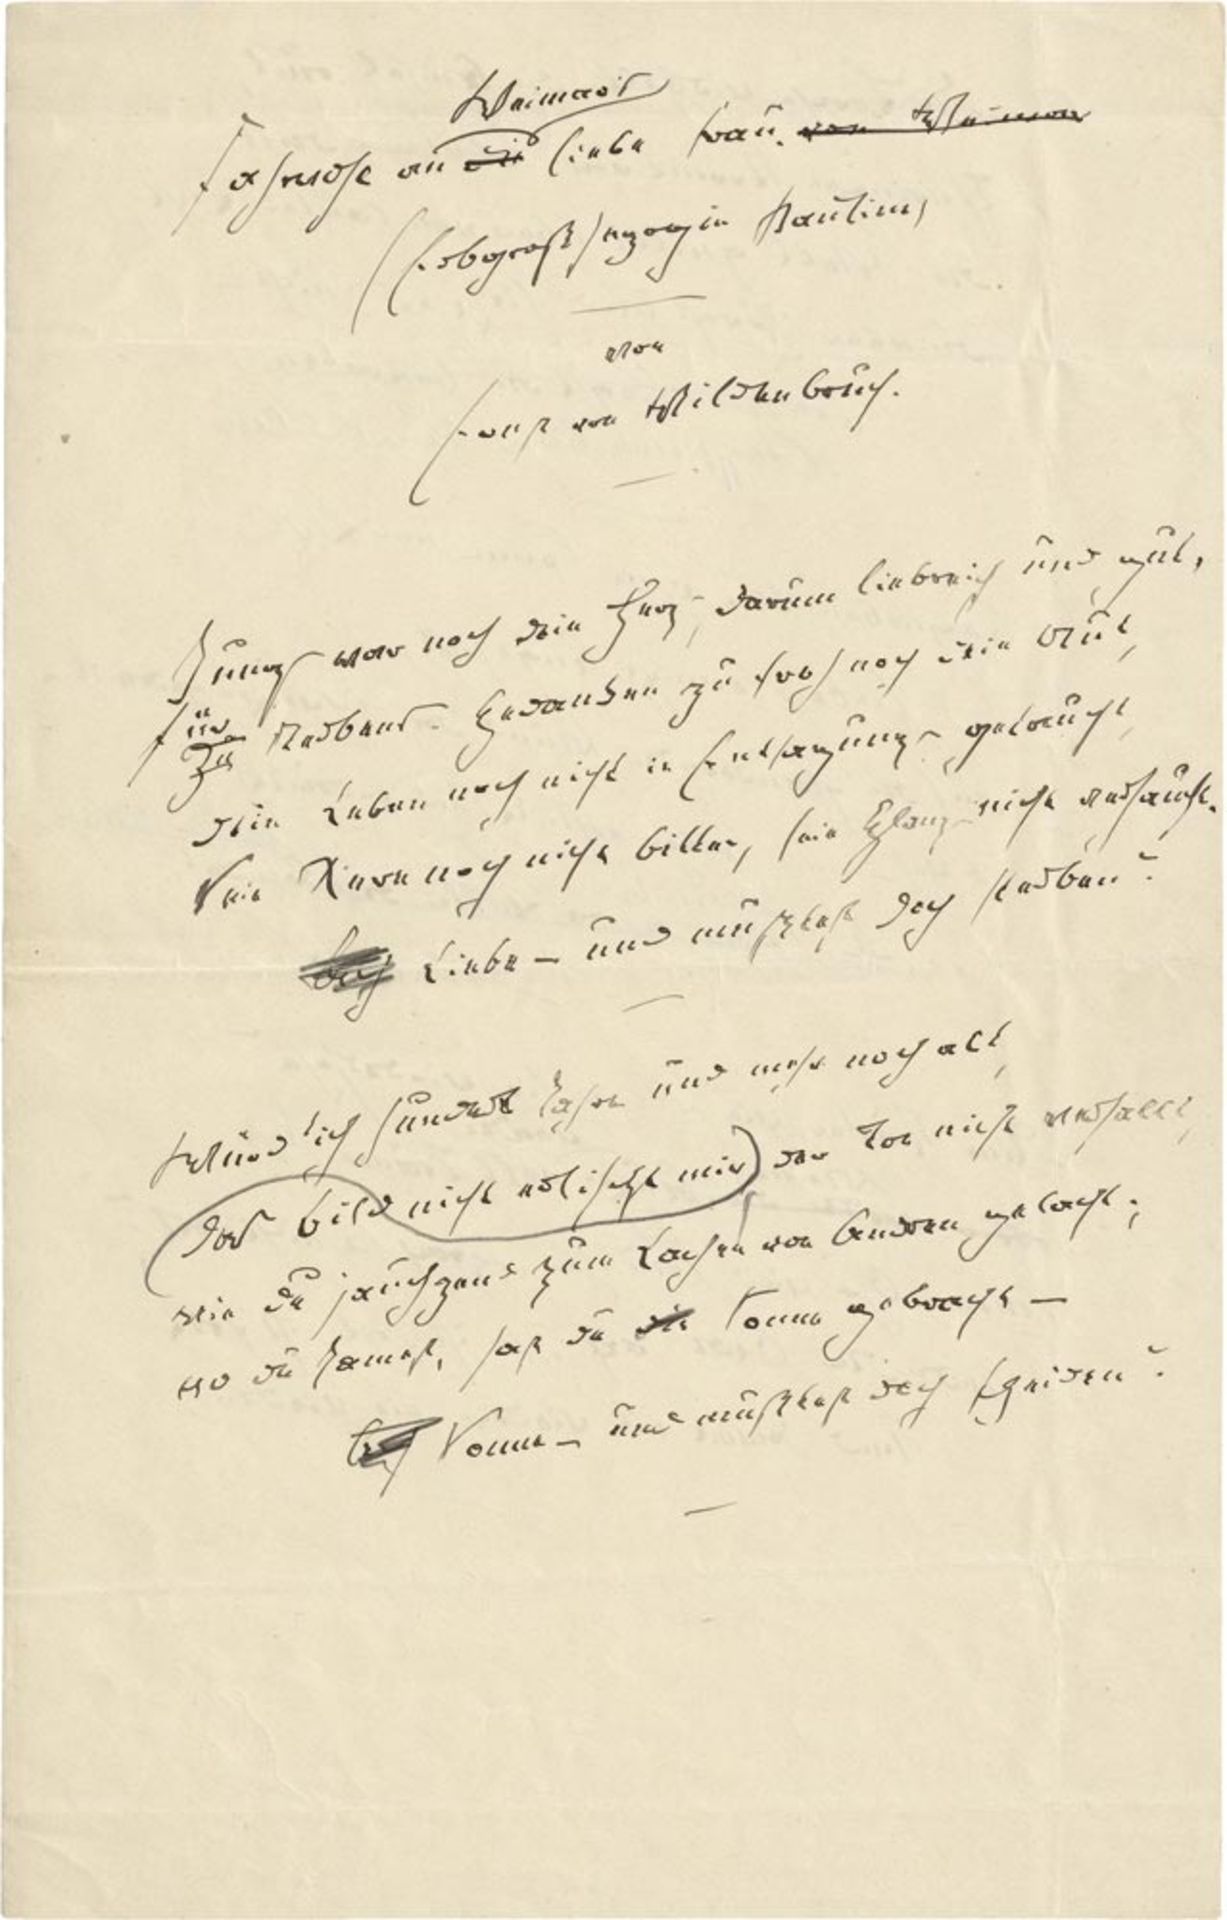 Weimars
Nachruf an die liebe Frau. von Weimar
(Erbgroßherzogin Pauline)
von
Ernst von Wildenbruch.
Jung war noch dein Herz, darum liebreich und gut,
für
Zu Sterbens-Gedanken zu froh noch dein Blut,
dein Leben noch nicht in Entsagung getaucht,
Sein Kern noch nicht bitter, sein Glanz nicht verhaucht.
Doch Liebe – und mußtest doch sterben!
Würd' ich hundert Jahr und mehr noch alt,
das Bild nicht erlischt mir, der Ton nicht verhallt,
wie du jauchzend zum Lachen von Andren gelacht;
wo du kamest, hast du die Sonne gebracht –
Doch Sonne – und mußtest doch scheiden!